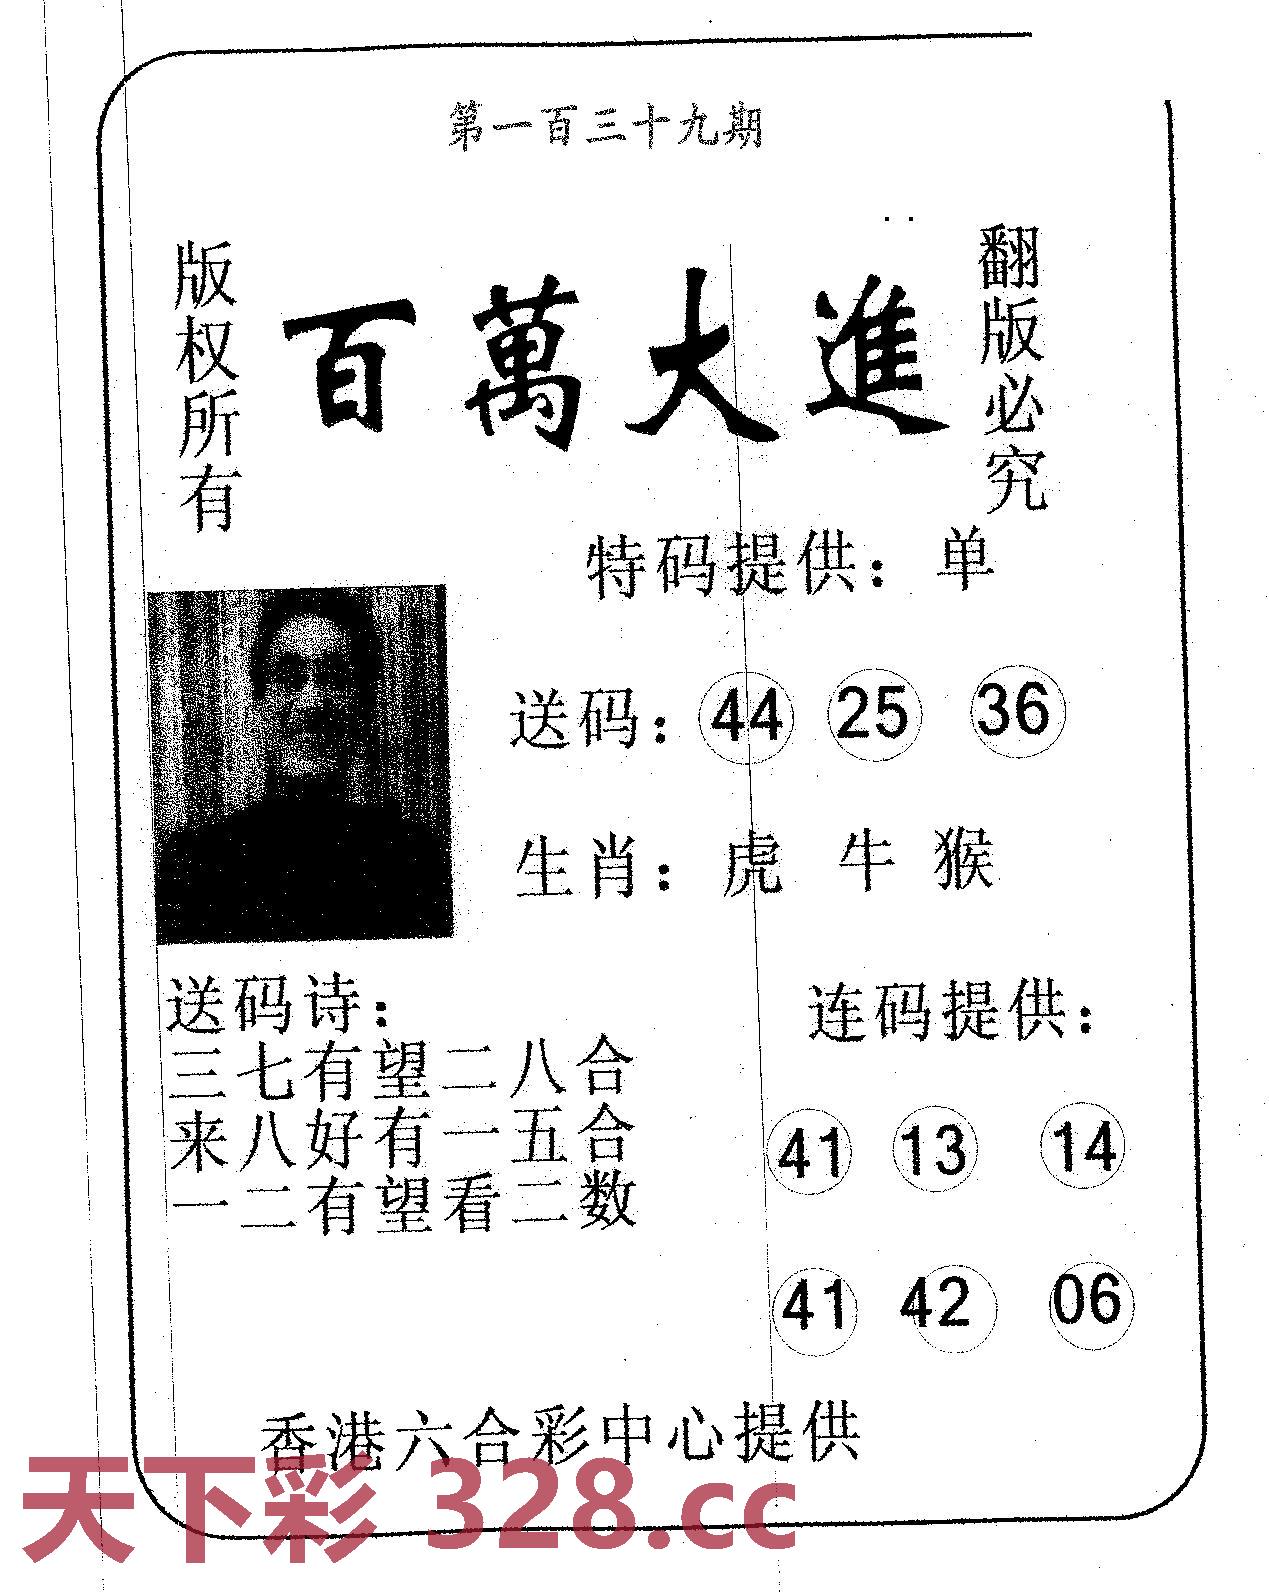 第一百三十九期
版权所有
百萬大進
翻版必究
特码提供：单
送码：44 25 36
生肖：虎 牛 猴
送码诗：
三七有望二八合
来八好有一五合
一二有望看二数
连码提供：
41 13 14
41 42 06
香港六合彩中心提供
天下彩 328.cc